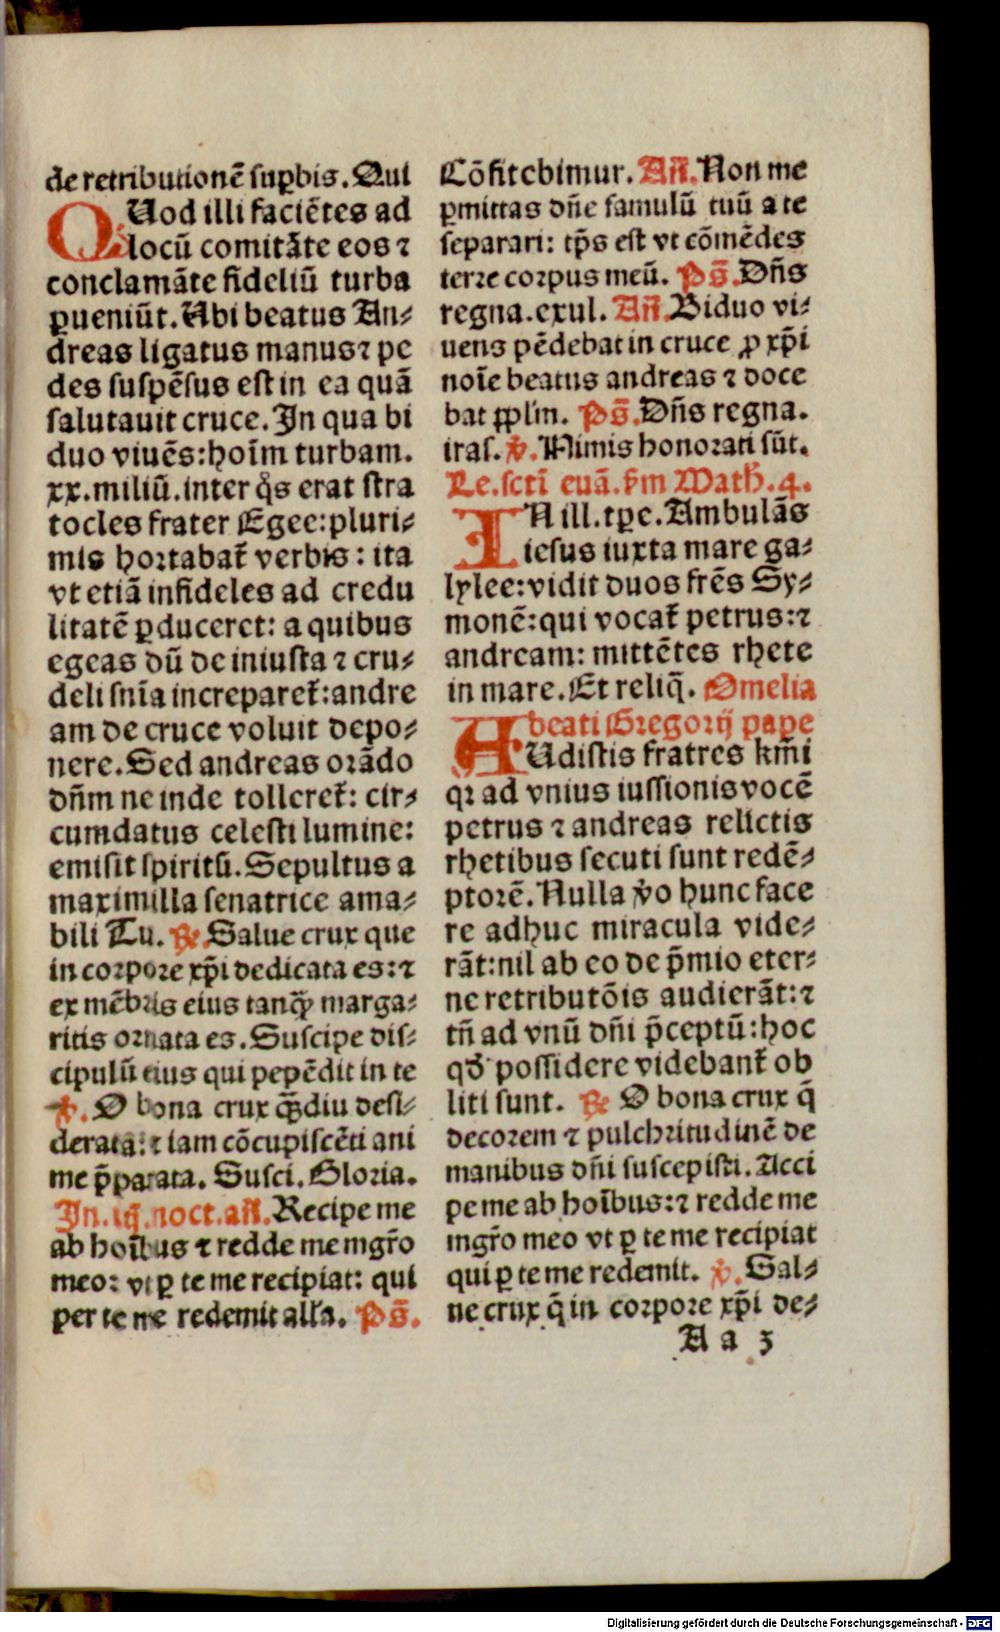 de retributionē suꝑbis. Qui
QUod illi faciētes ad
locū comitāte eos ⁊
conclamāte fideliū turba
ꝑueniūt. Ubi beatus An⸗
dreas ligatus manus ⁊ pe
des suspēsus est in ea quā
salutauit cruce. In qua bi
duo viuēs: hoīm turbam.
xx. miliū. inter q̊s erat stra
tocles frater Egee: pluri⸗
mis hortabat̄ verbis: ita
vt etiā infideles ad credu
litatē ꝑduceret: a quibus
egeas dū de iniusta ⁊ cru⸗
deli snīa increparet̄: andre
am de cruce voluit depo⸗
nere. Sed andreas orādo
dn̄m ne inde tolleret̄: cir⸗
cumdatus celesti lumine:
emisit spiritū. Sepultus a
maximilla senatrice ama⸗
bili Tu. ℞. Salue crux que
in corpore xp̄i dedicata es: ⁊
ex mēbris eius tanq̄ꝫ marga⸗
ritis ornata es. Suscipe dis⸗
cipulū eius qui pepēdit in te
℣. O bona crux q̄ꝫdiu desi⸗
derata: ⁊ iam cōcupiscēti ani
me p̄parata. Susci. Gloria.
In. ijͣ. noct. an̄. Recipe me
ab hoībus ⁊ redde me mgr̄o
meo: vt ꝑ te me recipiat: qui
per te me redemit alla. Ps̄.
Cōfitebimur. An̄. Non me
ꝑmittas dn̄e famulū tuū a te
separari: tp̄s est vt cōmēdes
terre corpus meū. Ps̄. Dn̄s
regna. exul. An̄. Biduo vi⸗
uens pēdebat in cruce ꝓ xp̄i
noīe beatus andreas ⁊ doce
bat pplm̄. Ps̄. Dn̄s regna.
iras. ℣. Nimis honorati sūt.
Le. sctī euā. ẜm Math̄. 4.
IN ill. tꝑe. Ambulās
iesus iuxta mare ga⸗
lylee: vidit duos frēs Sy⸗
monē: qui vocat̄ petrus: ⁊
andream: mittētes rhete
in mare. Et reliq̄. Omelia
beati Gregorij pape
AUdistis fratres km̄i
qꝛ ad vnius iussionis vocē
petrus ⁊ andreas relictis
rhetibus secuti sunt redē⸗
ptorē. Nulla v̊o hunc face
re adhuc miracula vide⸗
rāt: nil ab eo de p̄mio eter⸗
ne retributōis audierāt: ⁊
tn̄ ad vnū dn̄i p̄ceptū: hoc
qd̄ possidere videbant̄ ob
liti sunt. ℞. O bona crux q̄
decorem ⁊ pulchritudinē de
manibus dn̄i suscepisti. Acci
pe me ab hoībus: ⁊ redde me
mgr̄o meo vt ꝑ te me recipiat
qui ꝑ te me redemit. ℣. Sal⸗
ne crux q̄ in corpore xp̄i de⸗
A a 3
Digitalisierung gefördert durch die Deutsche Forschungsgemeinschaft - DFG